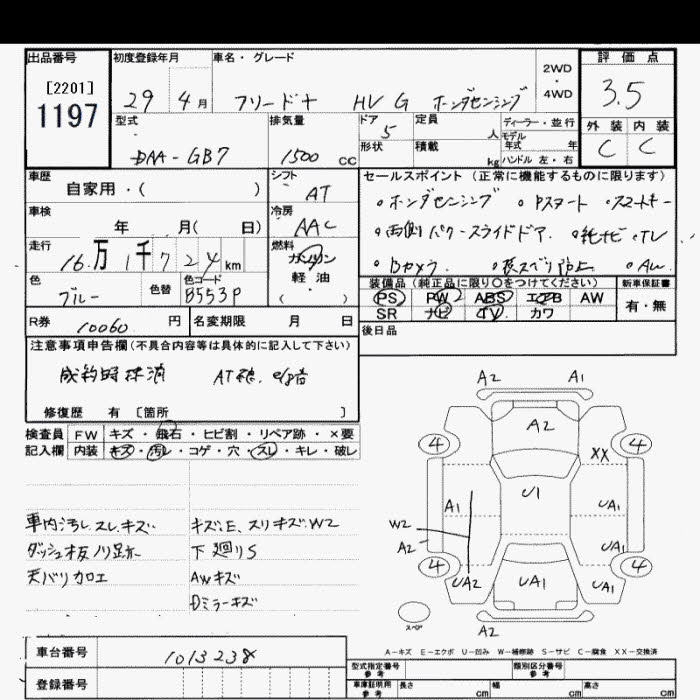 出品番号 初度登録年月 車名・グレード 2WD・4WD 評価点
[2201]
1197
29年 4月 フリード+ HV G ホンダセンシング 3.5
型式 排気量 ドア 定員 ディーラー・並行 外装 内装
5 人 モデル年式 年
DAA-GB7 1500 cc 形状 積載 kg ハンドル 左・右 C C
車歴 シフト セールスポイント (正常に機能するものに限ります)
自家用・( ) AT 。ホンダセンシング 。Pスタート 。スマートキー
車検 冷房 。両側パワースライドドア 。純ナビ・TV
年 月( 日) AAC 。Bカメラ 。横スベリ防止 。AW
走行 燃料
16万1千724km ガソリン
軽油
( )
色 色替 色コード
ブルー B553P
装備品 (純正品に限り○をつけてください) 新車保証書
PS PW ABS エアB AW 有・無
SR ナビ TV カワ
R券 10060円 名変期限 月 日 後日品
注意事項申告欄(不具合内容等は具体的に記入して下さい)
成約時抹消 AT
修復歴 有 〔箇所 〕
検査員 FW キズ・飛石・ヒビ割・リペア跡・×要
記入欄 内装 キズ・汚レ・コゲ・穴・スレ・キレ・破レ
車内汚レ、スレ、キズ キズ、E、スリキズ、W2
ダッシュ板ノリ跡 下廻りS
天バリカロエ AWキズ
Dミラーキズ
A2 A1
A2
4 4
XX
A1 U1 UA1
W2
A2 UA1
4 4
UA2 UA1 UA1
スペア
A2
A-キズ E-エクボ U-凹み W-補修跡 S-サビ C-腐食 XX-交換済
車台番号 1013238 型式指定番号 参考 類別区分番号 参考
登録番号 車庫証明用 参考 長さ cm 幅 cm 高さ cm